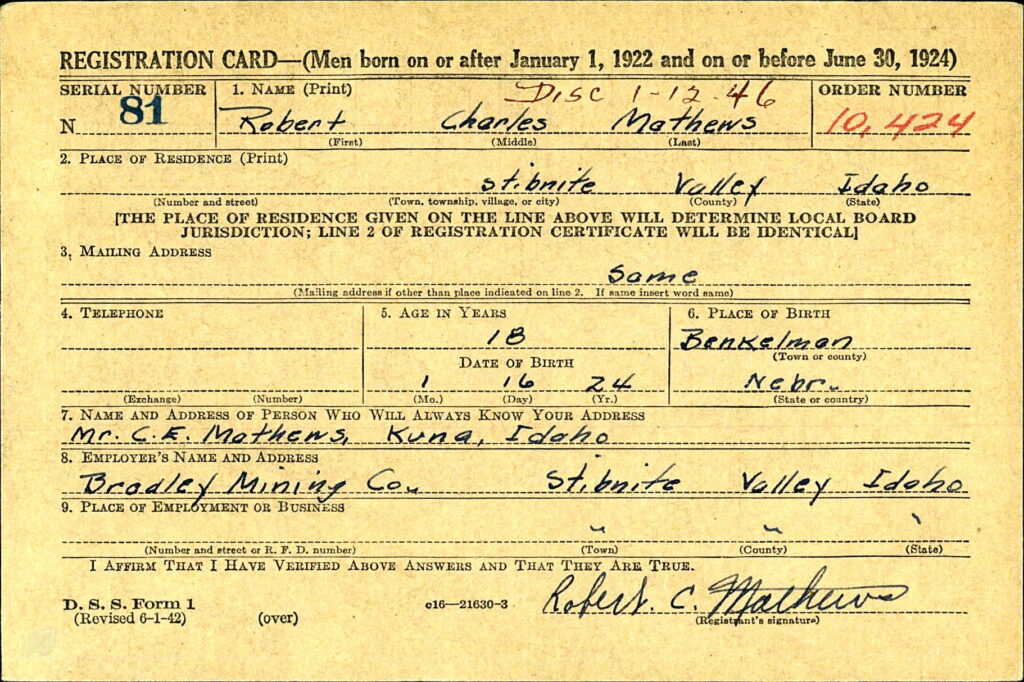 REGISTRATION CARD—(Men born on or after January 1, 1922 and on or before June 30, 1924)
SERIAL NUMBER
N 81
1. NAME (Print)
Disc 1-12-46
ORDER NUMBER
10,424
Robert Charles Mathews
(First) (Middle) (Last)
2. PLACE OF RESIDENCE (Print)
Stibnite Valley Idaho
(Number and street) (Town, township, village, or city) (County) (State)
[THE PLACE OF RESIDENCE GIVEN ON THE LINE ABOVE WILL DETERMINE LOCAL BOARD
JURISDICTION; LINE 2 OF REGISTRATION CERTIFICATE WILL BE IDENTICAL]
3. MAILING ADDRESS
Same
(Mailing address if other than place indicated on line 2. If same insert word same)
4. TELEPHONE
(Exchange) (Number)
5. AGE IN YEARS
18
DATE OF BIRTH
1 16 24
(Mo.) (Day) (Yr.)
6. PLACE OF BIRTH
Benkelman
(Town or county)
Nebr.
(State or country)
7. NAME AND ADDRESS OF PERSON WHO WILL ALWAYS KNOW YOUR ADDRESS
Mr. C. E. Mathews, Kuna, Idaho
8. EMPLOYER'S NAME AND ADDRESS
Bradley Mining Co. Stibnite Valley Idaho
9. PLACE OF EMPLOYMENT OR BUSINESS
" " "
(Number and street or R. F. D. number) (Town) (County) (State)
I AFFIRM THAT I HAVE VERIFIED ABOVE ANSWERS AND THAT THEY ARE TRUE.
D. S. S. Form 1
(Revised 6-1-42) (over)
c16—21630-3
Robert. C. Mathews
(Registrant's signature)